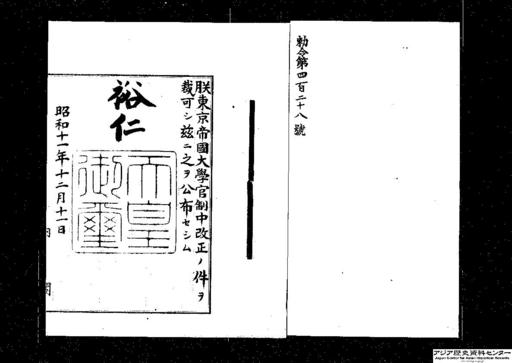 勅令第四百二十八號
朕東京帝國大學官制中改正ノ件ヲ
裁可シ兹ニ之ヲ公布セシム
裕仁
天皇
御璽
昭和十一年十二月十一日
アジア歴史資料センター
Japan Center for Asian Historical Records